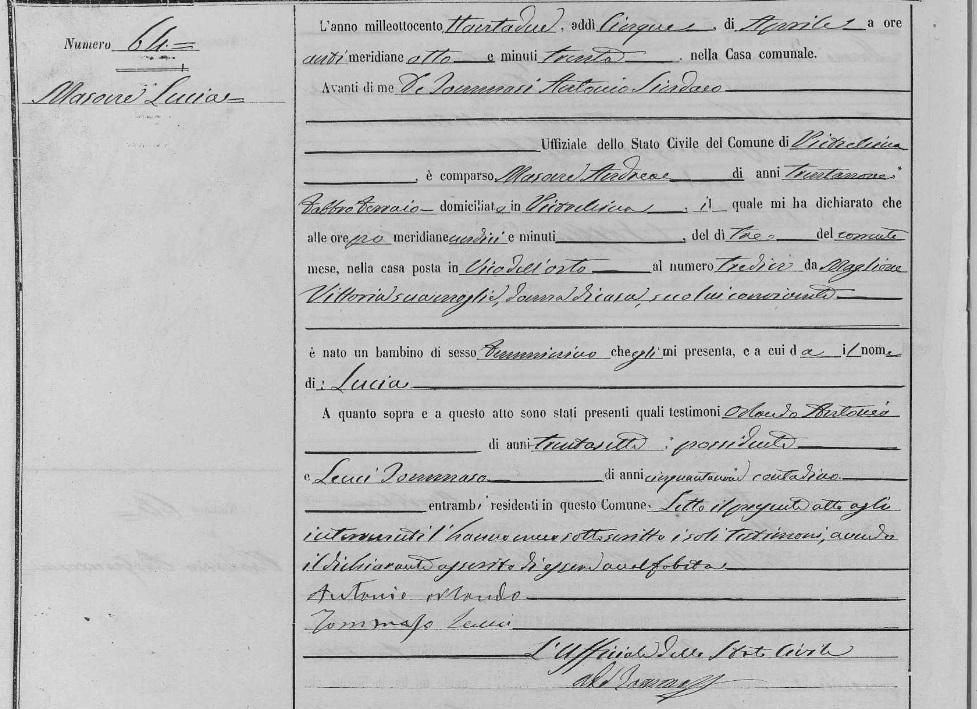 Numero 64=
Masone Lucia
L'anno milleottocento Ottantadue, addì Cinque di Aprile a ore
anti meridiane otto e minuti trenta, nella Casa comunale.
Avanti di me De Tommasi Antonio Sindaco
Uffiziale dello Stato Civile del Comune di Pietrelcina
, è comparso Masone Andrea di anni trentanove
Fabbro ferraio domiciliato in Pietrelcina, il quale mi ha dichiarato che
alle ore po meridiane undici e minuti, del dì tre del corrente
mese, nella casa posta in Vico dell'orto al numero tredici da Maglione
Vittoria sua moglie, donna di casa, seco lui convivente
è nato un bambino di sesso femminino che egli mi presenta, e a cui da il nome
di: Lucia
A quanto sopra e a questo atto sono stati presenti quali testimoni Orlando Antonio
di anni trentasette, possidente
e Lenci Tommaso di anni contadino
entrambi residenti in questo Comune. Letto il presente atto agli
intervenuti l'hanno meco sottoscritto i soli testimoni, avendo
il dichiarante asserito di essere analfabeta
Antonio Orlando
Tommaso Lenci
L'Uffiziale dello Stato Civile